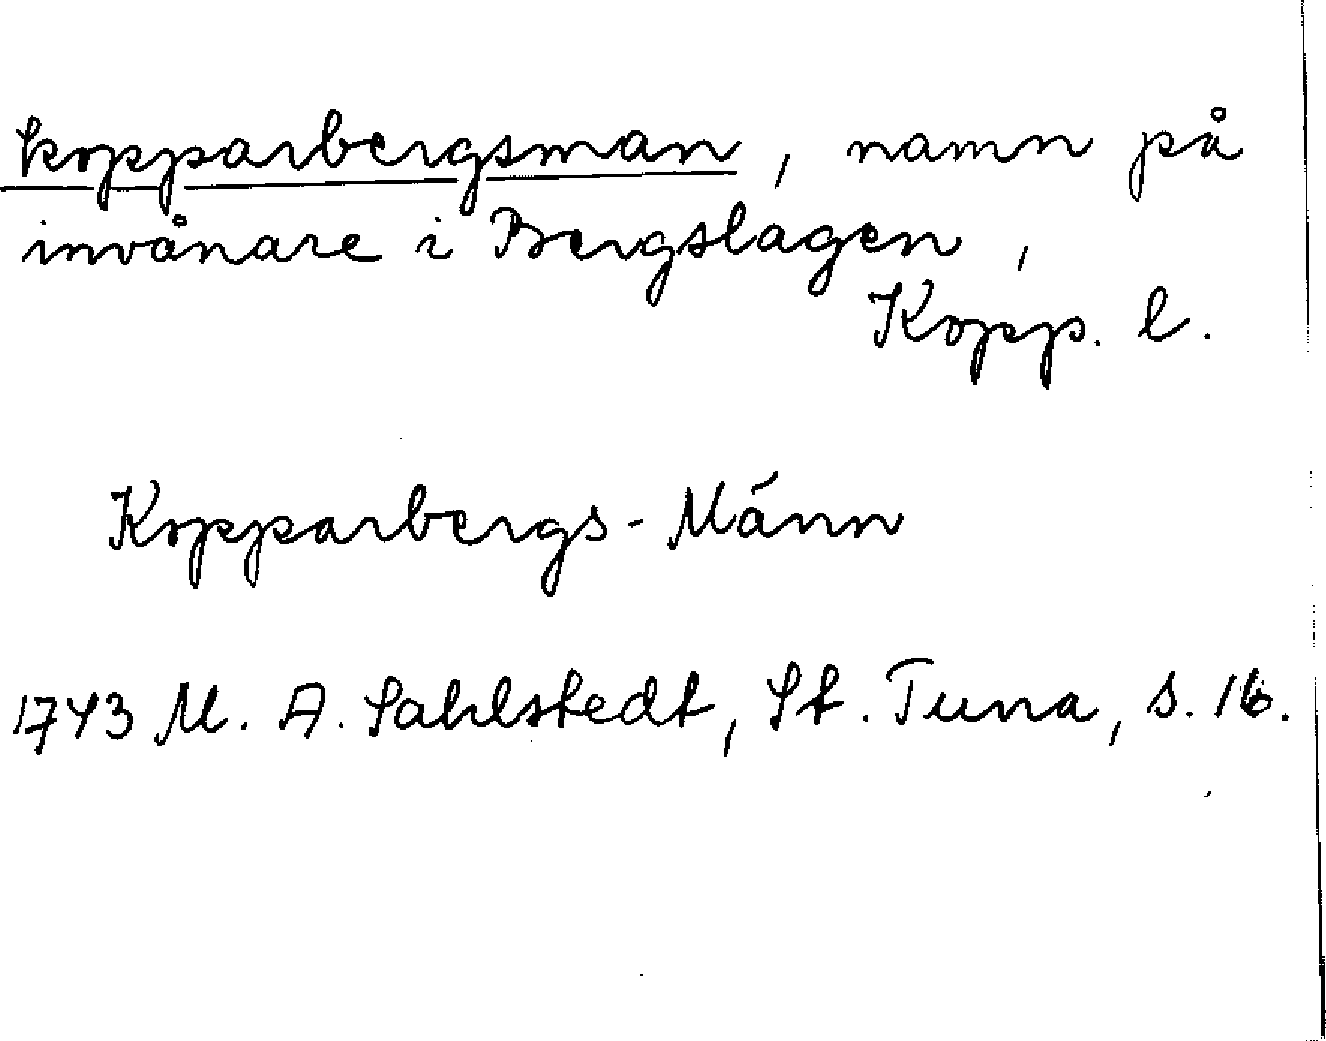 kopparbergsman, namn på
invånare i Bergslagen,
Kopp. l.
Kopparbergs-Männ
1743 M. A. Sahlstedt, St. Tuna, s. 16.